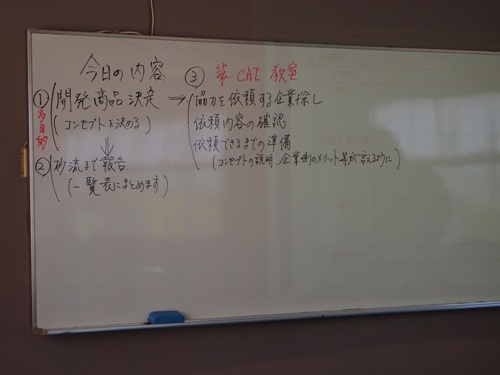 今日の内容
① 開発商品決定 →
(コンセプトを決める)
② 砂流まで報告
(一覧表にまとめます)
③ 第一CAI教室
協力を依頼する企業探し
依頼内容の確認
依頼できるまでの準備
(コンセプトの説明、企業側のメリット等が言えるように)